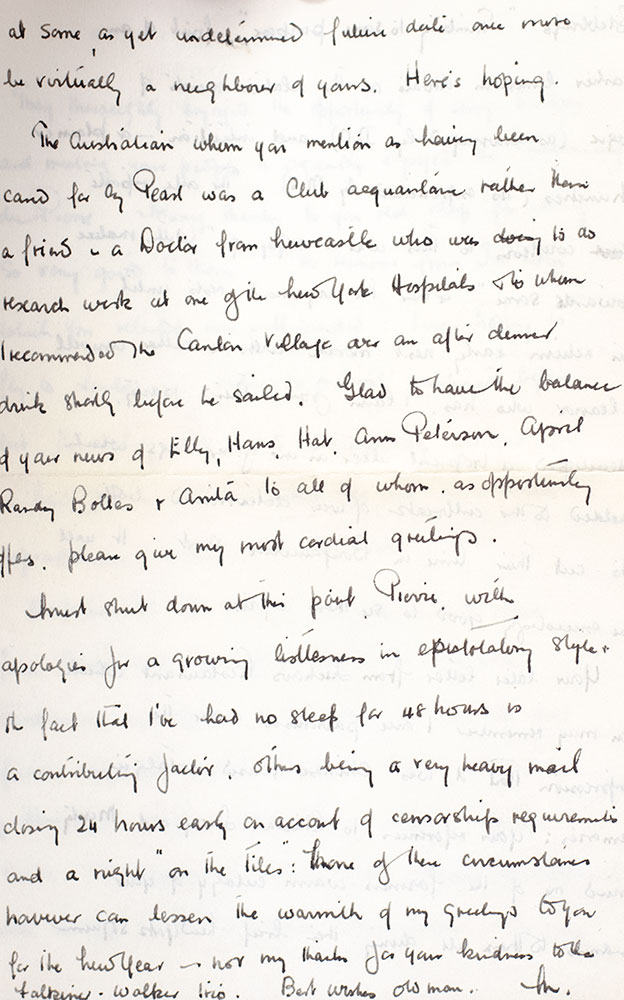 at some, as yet undetermined future date once more
be virtually a neighbour of yours. Here's hoping.
The Australian whom you mention as having been
cared for by Pearl was a Club acquaintance rather than
a friend - a Doctor from Newcastle who was doing to do
research work at one of the New York Hospitals & to whom
I recommended the Canton Village over an after dinner
drink shortly before he sailed. Glad to have the balance
of your news of Elly, Hans, Hat, Ann Peterson, April
Randy Bolles & Anita to all of whom, as opportunity
offers, please give my most cordial greetings.
I must shut down at this point, Pierre, with
apologies for a growing listlessness in epistolatory style &
the fact that I've had no sleep for 48 hours is
a contributing factor, others being a very heavy mail
closing 24 hours early on account of censorship requirements
and a night "on the tiles": None of these circumstances
however can lessen the warmth of my greetings to you
for the New Year - nor my thanks for your kindness to the
Falkiner-Walker trio. Best wishes old man.